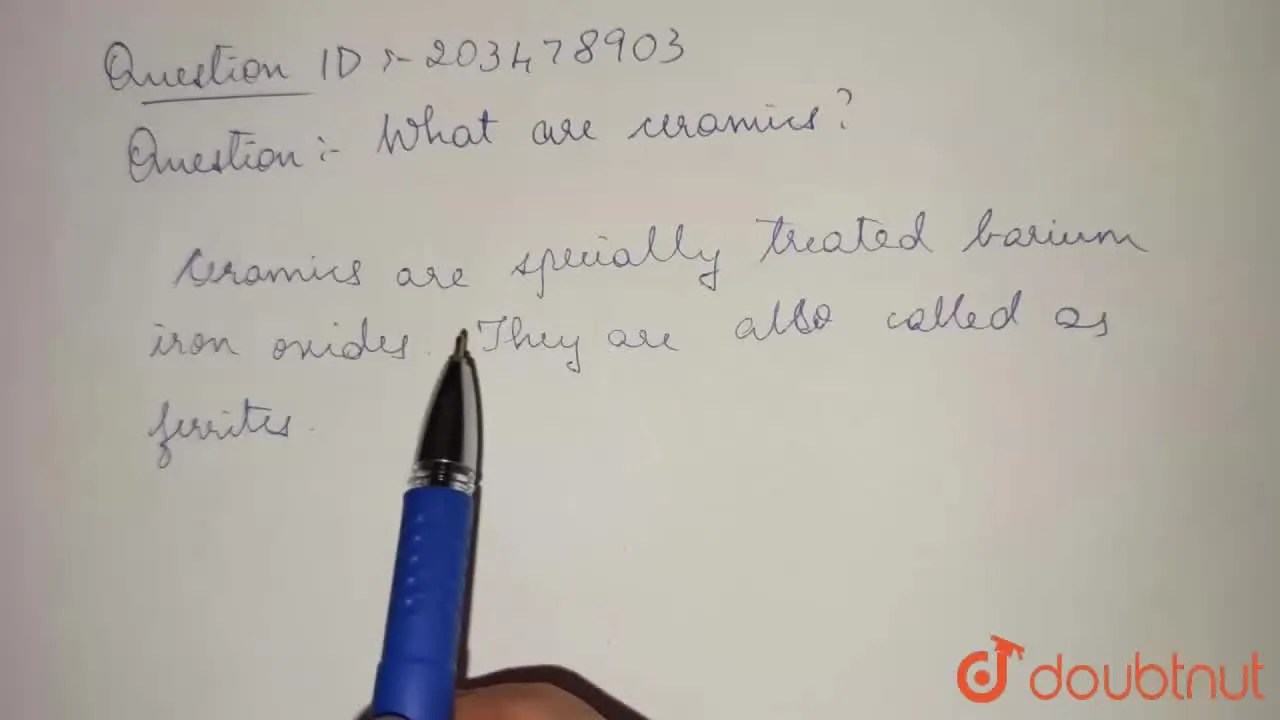 Question ID :- 203478903
Question :- What are ceramics?
Ceramics are specially treated barium
iron oxides. They are also called as
ferrites.
doubtnut